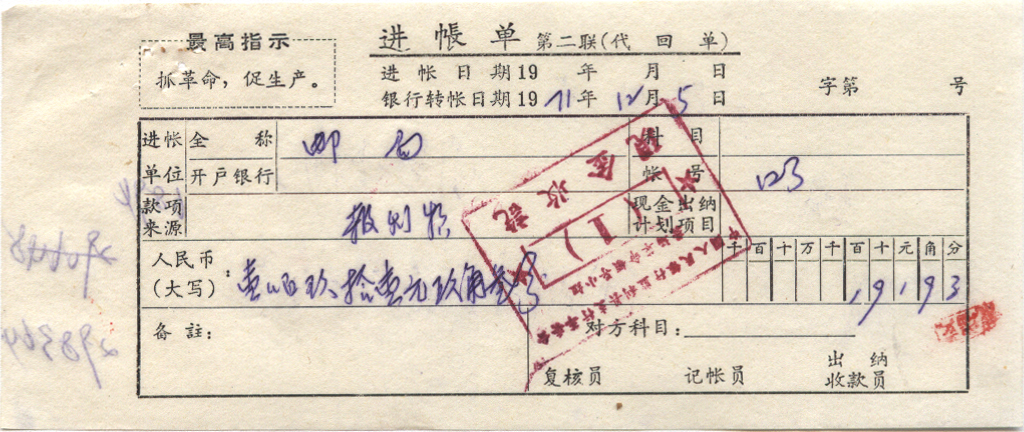 最高指示
抓革命，促生产。
进帐单 第二联(代回单)
进帐日期19 年 月 日
银行转帐日期1971年12月5日
字第 号
进帐单位 全称 邮局 科目
开户银行 帐号 123
款项来源 报刊款 现金出纳计划项目
千百十万千百十元角分
人民币(大写)： 壹佰玖拾壹元玖角叁分 19193
备註： 对方科目：
复核员 记帐员 出纳收款员
现金收款
(1)
中国人民银行监利县支行革委会